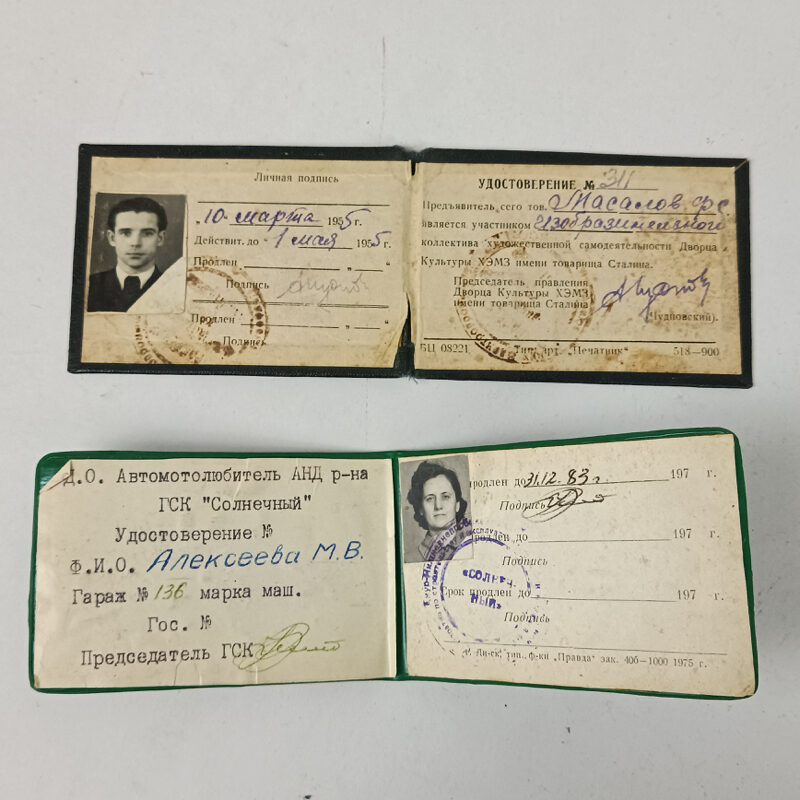 Личная подпись
"10" марта 1955 г.
Действит. до "1 мая" 1955 г.
Продлен " "
Подпись
Продлен " "
Подпись
УДОСТОВЕРЕНИЕ № 311
Предъявитель сего тов. Масалов Ф.С.
является участником Изобразительного
коллектива художественной самодеятельности Дворца
Культуры ХЭМЗ имени товарища Сталина.
Председатель правления
Дворца Культуры ХЭМЗ
имени товарища Сталина
(Чудновский).
БЦ 08221 Тип. арт. „Печатник" 518—900
Д.О. Автомотолюбитель АНД р-на
ГСК "Солнечный"
Удостоверение №
Ф.И.О. Алексеева М.В.
Гараж № 136 марка маш.
Гос. №
Председатель ГСК
продлен до 31.12.83 г. 197 г.
Подпись
продлен до 197 г.
Подпись
Срок продлен до 197 г.
Подпись
тип. ф-ки „Правда" зак. 406—1000 1975 г.
«СОЛНЕЧ
НЫЙ»